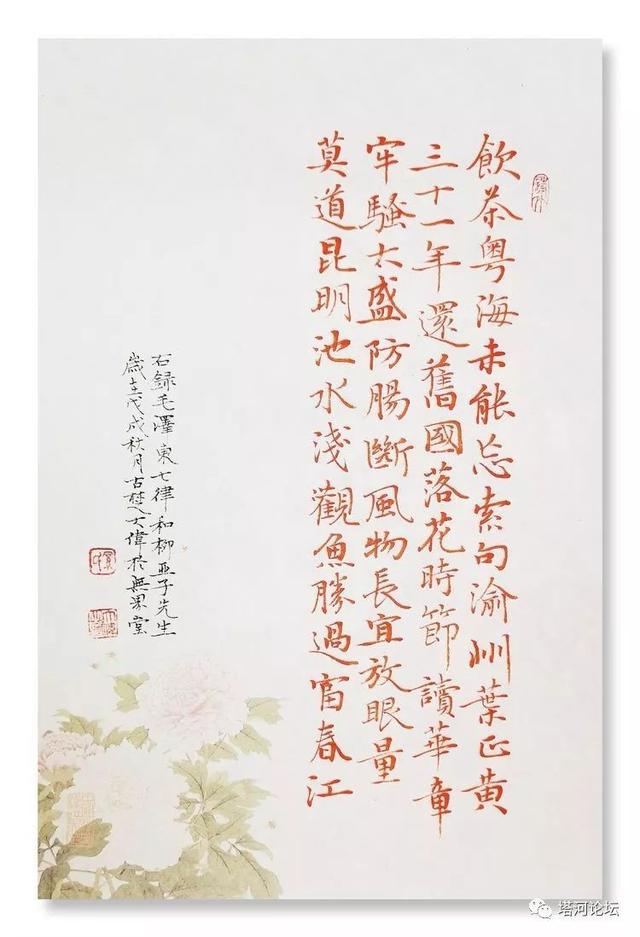 飲茶粵海未能忘索句渝州葉正黃
三十一年還舊國落花時節讀華章
牢騷太盛防腸斷風物長宜放眼量
莫道昆明池水淺觀魚勝過富春江
右録毛澤東七律和柳亞子先生
歲在戊戌秋月古楚大偉於無果堂
塔河论坛